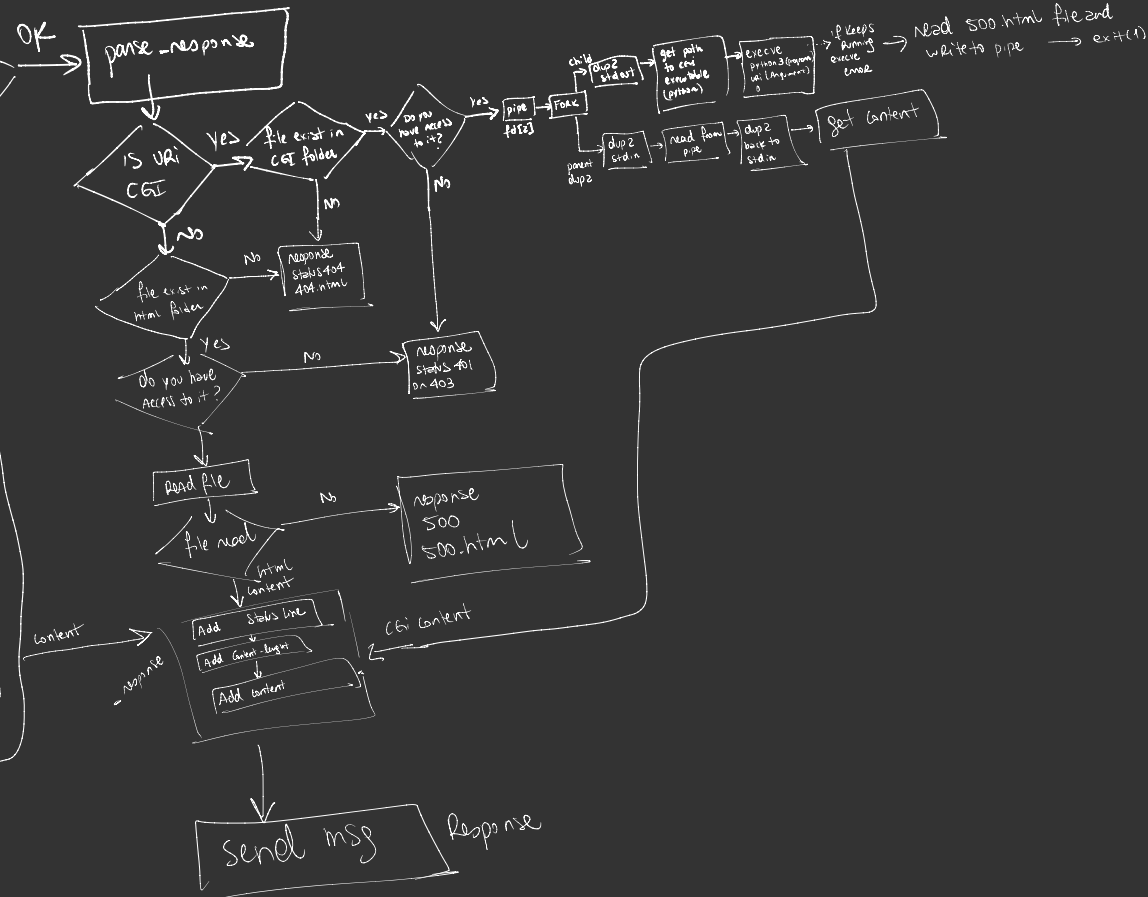 OK
parse_response
IS URi
CGI
Yes
file exist in
CGI folder
yes
Do you
have access
to it?
yes
pipe
fd[2]
FORK
child
dup2
stdout
get path
to cmd
executable
(python)
execve
python3(program)
uri (Argument)
if keeps
Running
execve
error
read 500.html file and
write to pipe
exit(1)
parent
dup2
dup2
stdin
read from
pipe
dup2
back to
stdin
get content
No
No
No
file exist in
html folder
No
response
status 404
404.html
Yes
do you have
Access to it?
No
response
status 401
or 403
Read file
file read
No
response
500
500.html
html
content
content
_response
Add Status Line
Add Content-lenght
Add content
CGi content
send msg
Response